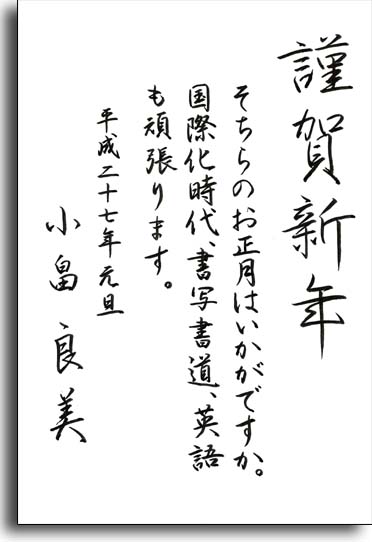 謹賀新年
そちらのお正月はいかがですか。
国際化時代、書写書道、英語
も頑張ります。
平成二十七年元旦
小畠良美